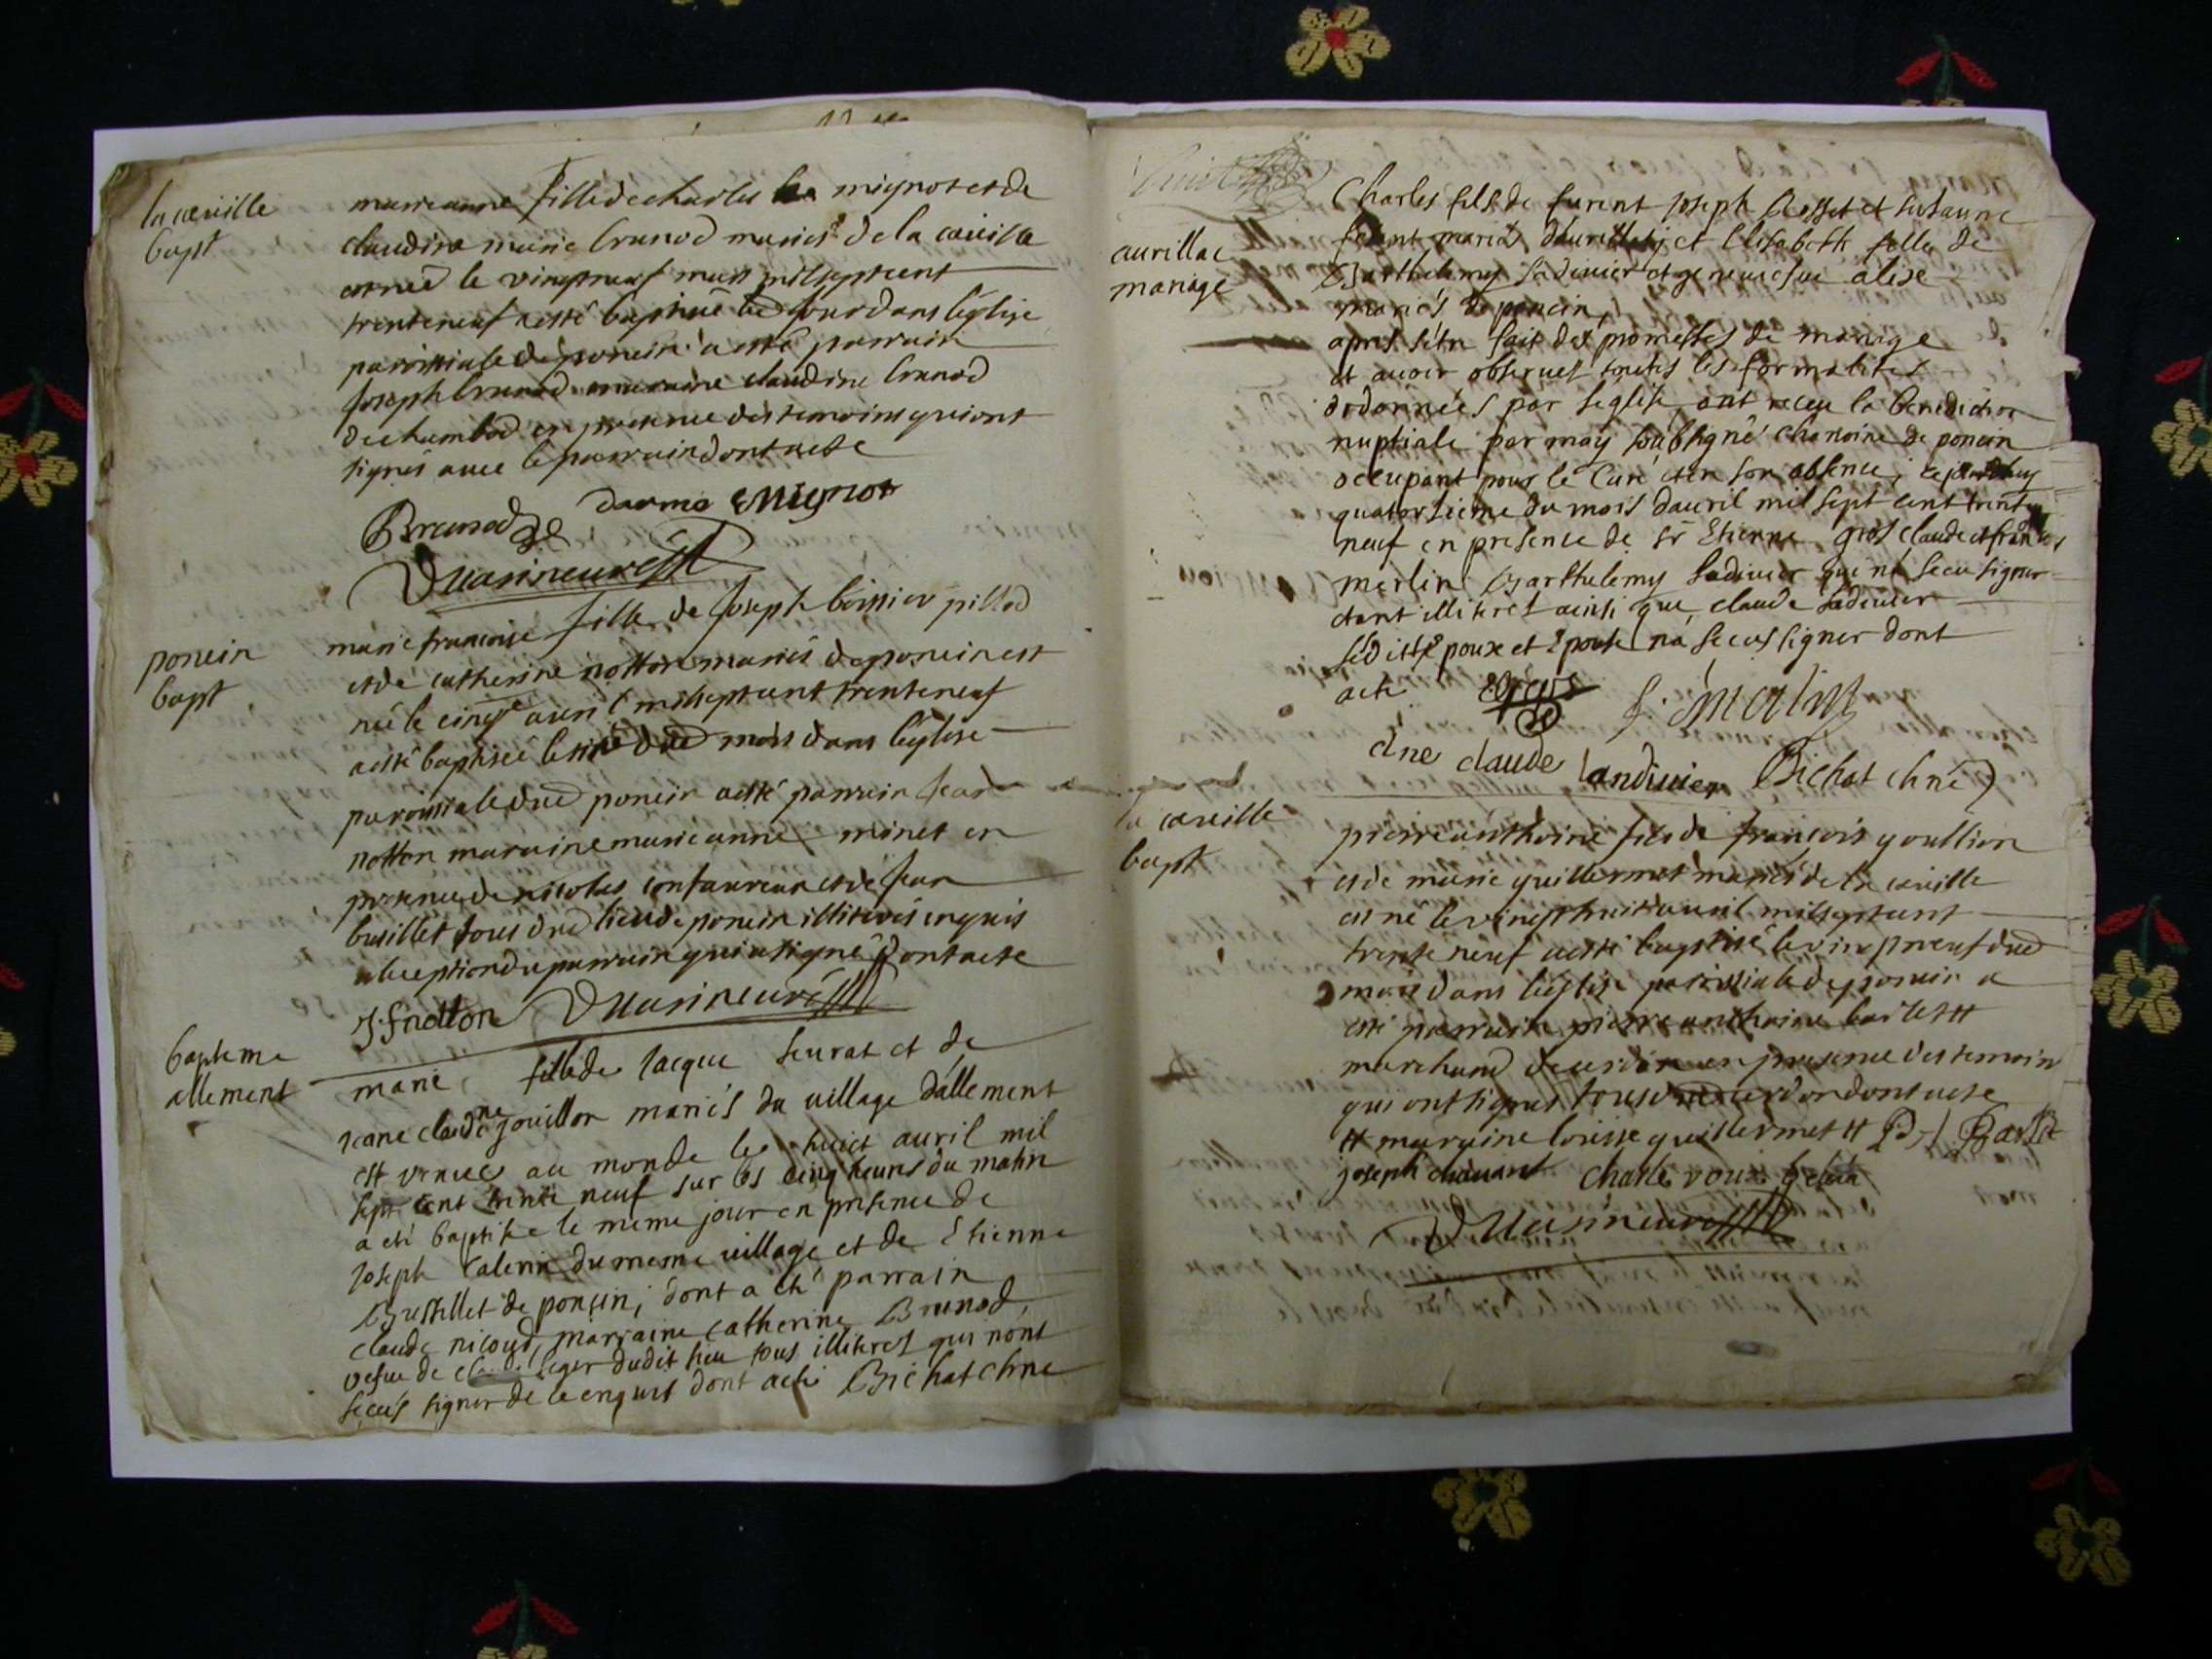 la cœuille
bapt
marieanne fille de charles mignot et de
claudine marie brunod mariés de la cœuille
est née le vingtneuf mars mil sept cent
trenteneuf a esté baptisée led jour dans l'église
parroissiale de poncin a esté parrain
joseph brunod maraine claudine brunod
de chambod en presence des temoins qui ont
signés avec le parrain dont acte
Brunod darme Mignot
ponein
bapt
marie francoise fille de joseph boissier pillod
et de catherine notton mariés de poncin est
née le cinq avril mil sept cent trenteneuf
a esté baptisée le dud mois dans l'église
paroissiale dud poncin a esté parrain jean
notton maraine marie anne minet en
presence de nicolas et de jean
busillet tous dud lieu de poncin illiterés enquis
a lexception du parrain qui a signé dont acte
J. fnotton
bapteme
allement
marie fille de Jacque seurat et de
jeane claudine gouillon mariés du village dallement
est venue au monde le huict auril mil
sept cent trente neuf sur les cinq heures du matin
a eté baptisée le meme jour en presence de
Joseph du meme uillage et de Etienne
Bussillet de poncin, dont a eté parrain
claude nicoud, marraine catherine Brunod,
vefue de leger dudit lieu tous illiteres qui nont
sceus signer de ce enquis dont acte Bichat chne
aurillac
mariage
Charles fils de furent Joseph Rosset et susanne
mariés daurillac et Elisabeth fille de
Barthelemy et genevieve alise
mariés de poncin,
apres setre fait des promesses de mariage
et auoir obserues toutes les formalités
ordonnées par leglise, ont receu la benediction
nuptiale par moy soubsigné chanoine de poncin
occupant pour le Curé et en son absence, ce
quatorsieme du mois dauril mil sept cent trente
neuf en presence de sr Etienne gros claude et francois
merlin Barthelemy ladiuier qui na sceu signer
etant illiteres ainsi que claude ladiuier
lesdits Epoux et Epouse na sceus signer dont
acte EGros f. merlin
claude landiuier Bichat chne
la cœuille
bapt
pierre anthoine fils de francois goullion
et de marie guillermet mariés de la cœuille
est né le vingthuit avril mil sept cent
trente neuf a esté baptisé le vingtneuf dud
mois dans l'église paroissiale de poncin a
esté parrain pierre anthoine barlet #
marchand de cerdon en presence des temoin
qui ont signés tous de cerdon dont acte
# maraine louisse guillermet # P A Barlet
joseph chauant charle roux